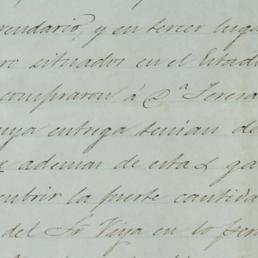 rendario, y en tercer luga
ro situados en el Estad
compraron á D.ª Teresa
uya entrega tenian de
ademas de esta y ga
cubrir la fuerte cantida
del Sr Viya en lo per